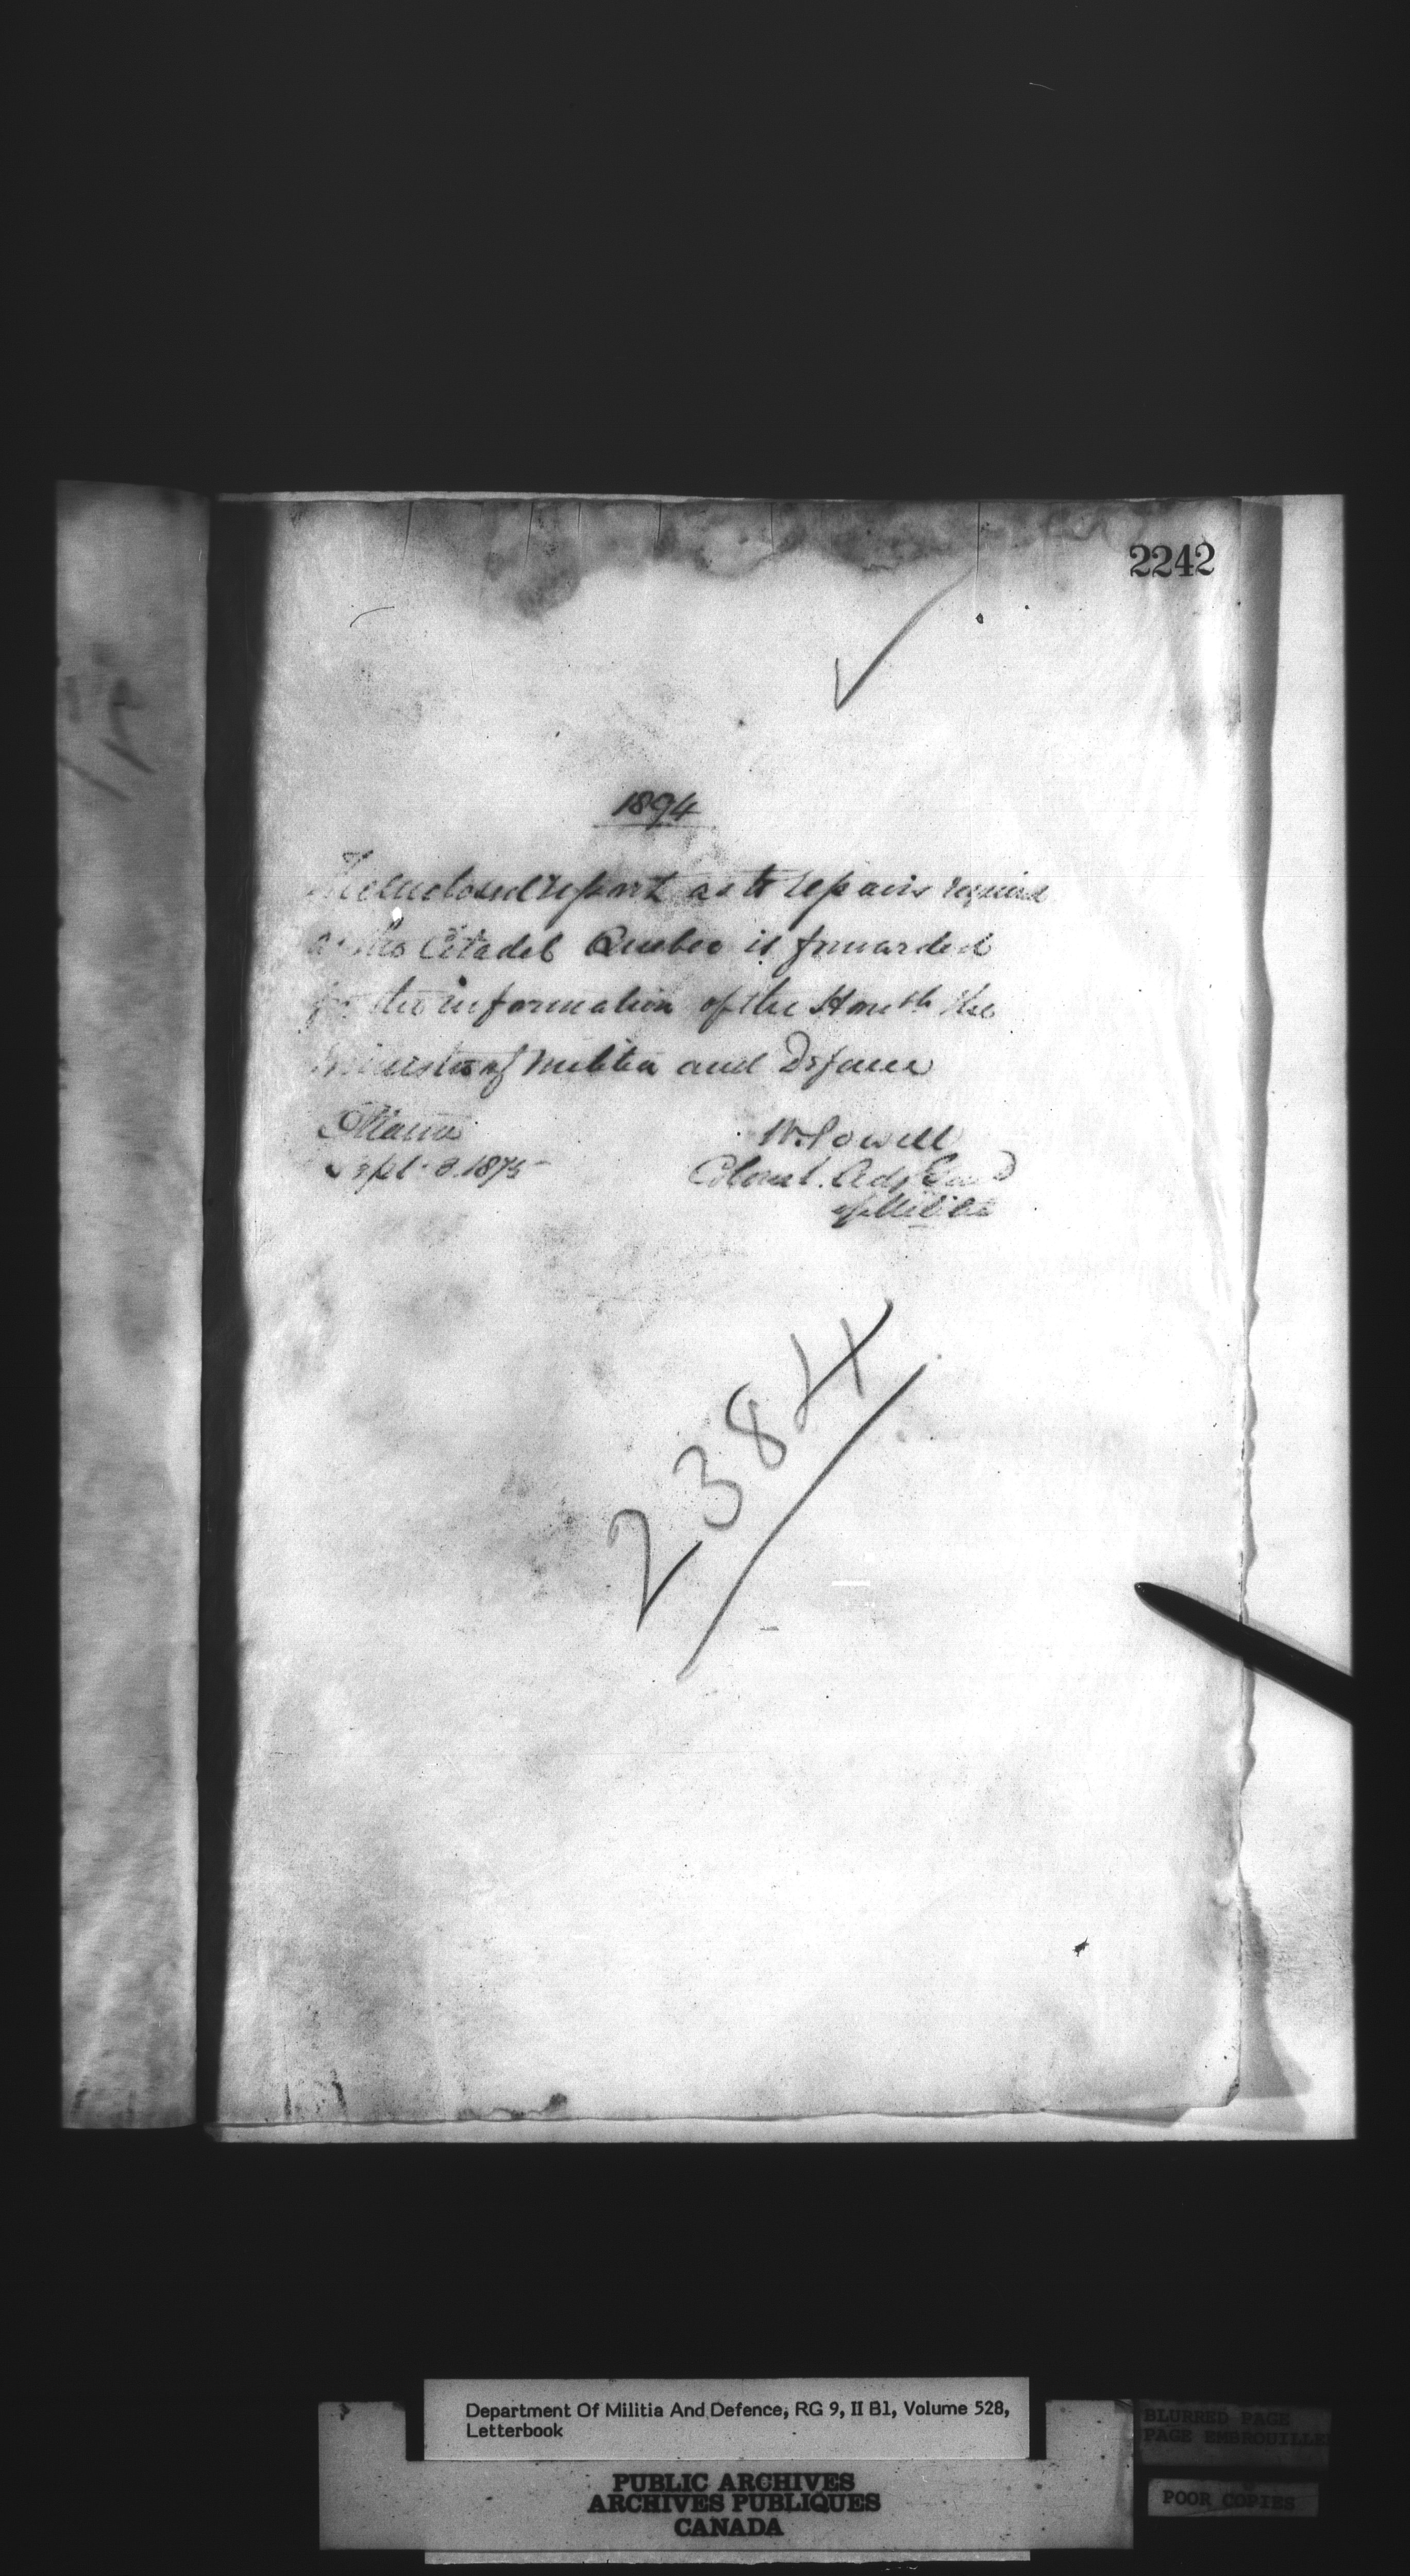 2242
1894
The enclosed report as to repairs required
at the Citadel Quebec is forwarded
for the information of the Honble the
Minister of Militia and Defence
Ottawa
Sept. 3. 1875
W. Powell
Colonel. Adjt Genl
of Militia
2384
Department Of Militia And Defence, RG 9, II B1, Volume 528,
Letterbook
PUBLIC ARCHIVES
ARCHIVES PUBLIQUES
CANADA
BLURRED PAGE
PAGE EMBROUILLE
POOR COPIES